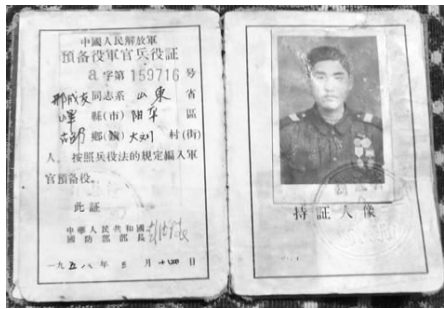 中國人民解放軍
預备役軍官兵役証
a字第159716号
同志系山東省
縣(市)陽平區
鄉(鎮)大刘村(街)
人，按照兵役法的規定編入軍
官預备役。
此証
中華人民共和國
國防部部長
一九五八年 月十四日
持証人像